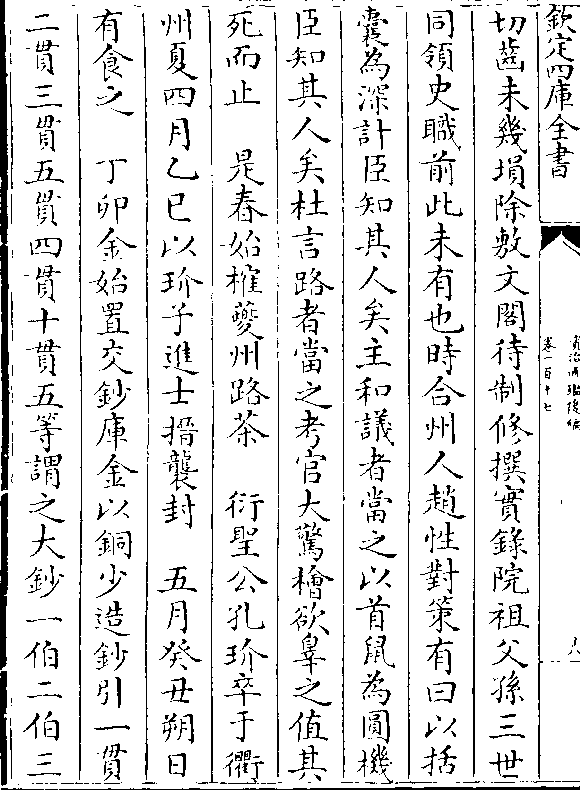 欽定四庫全書
資治通鑑後編
卷一百十七
切齒未幾塤除敷文閣待制修撰實錄院祖父孫三世
同領史職前此未有也時台州人趙性對策有曰以括
囊為深計臣知其人矣主和議者當之以首鼠為圓機
臣知其人矣杜言路者當之考官大驚檜欲辠之值其
死而止　是春始榷夔州路茶　衍聖公孔玠卒于衢
州夏四月乙巳以玠子進士搢襲封　五月癸丑朔日
有食之　丁卯金始置交鈔庫金以銅少造鈔引一貫
二貫三貫五貫四貫十貫五等謂之大鈔一伯二伯三